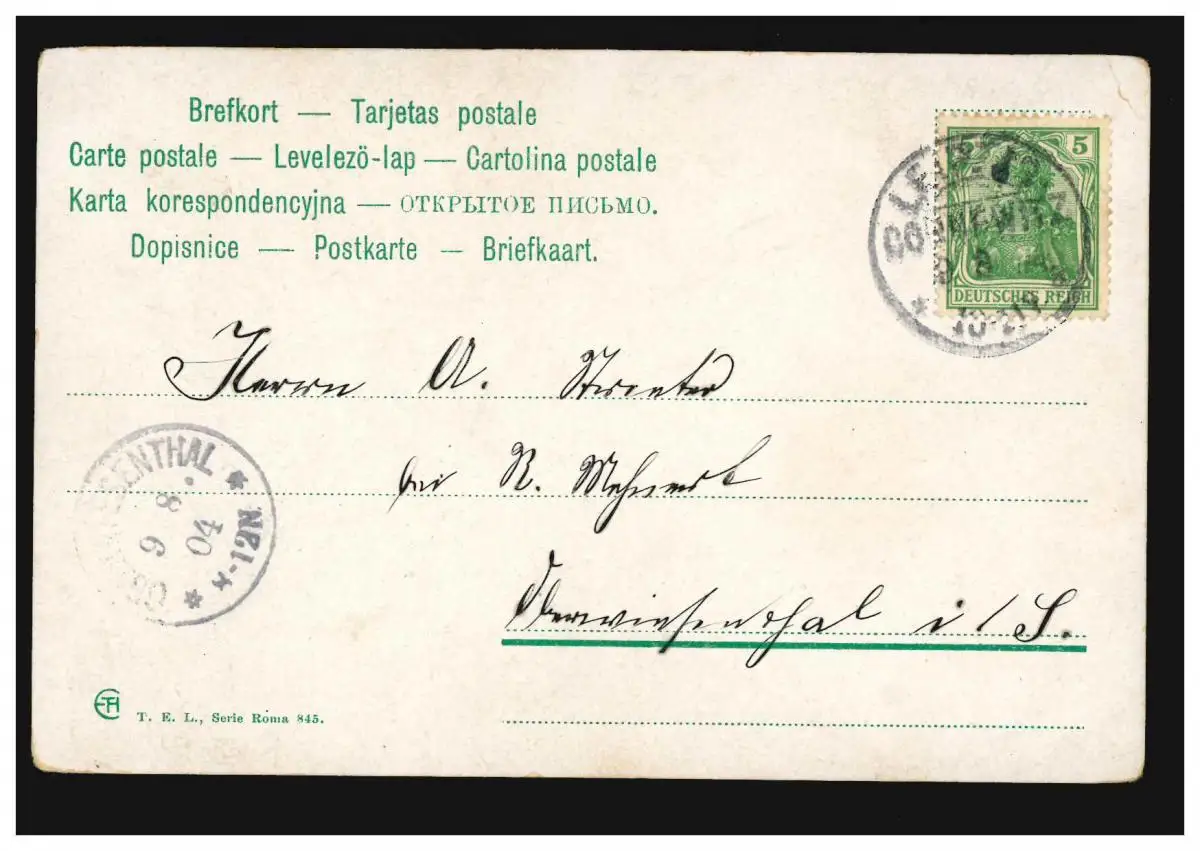 Brefkort — Tarjetas postale
Carte postale — Levelezö-lap — Cartolina postale
Karta korespondencyjna — ОТКРЫТОЕ ПИСЬМО.
Dopisnice — Postkarte — Briefkaart.
5
DEUTSCHES REICH
LEIPZIG
CONNEWITZ
Herrn A.
bei R. Mehnert
Oberwiesenthal i/S.
SENTHAL
9 8.
04
8-12N.
T. E. L., Serie Roma 845.